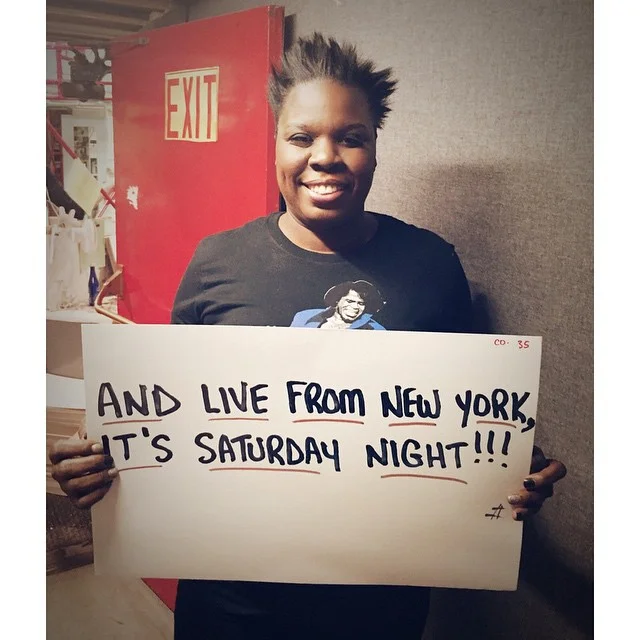 EXIT
CO- 35
AND LIVE FROM NEW YORK,
IT'S SATURDAY NIGHT!!!
#